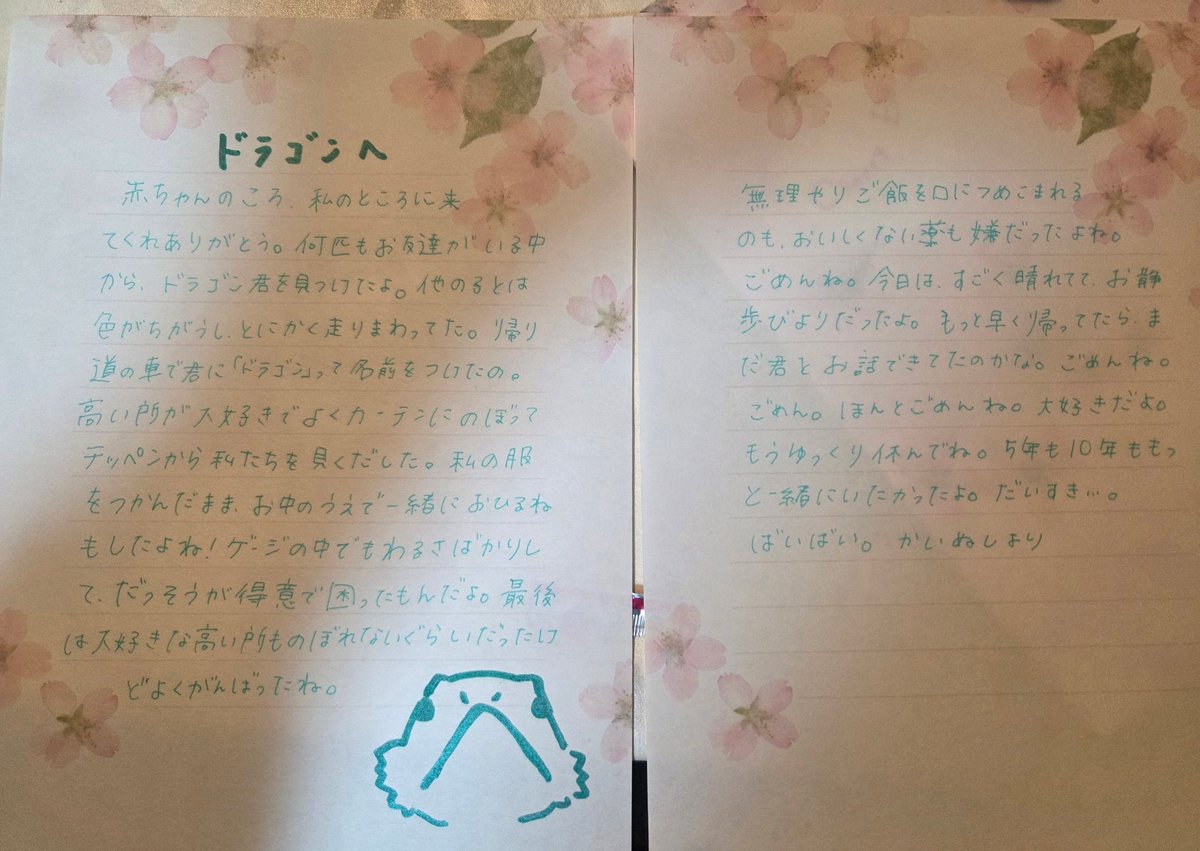 ドラゴンへ
赤ちゃんのころ、私のところに来
てくれありがとう。何匹もお友達がいる中
から、ドラゴン君を見つけたよ。他の子とは
色がちがうし、とにかく走りまわってた。帰り
道の車で君に「ドラゴン」って名前をつけたの。
高い所が大好きでよくカーテンにのぼって
テッペンから私たちを見くだした。私の服
をつかんだまま、お中のうえで一緒におひるね
もしたよね!ゲージの中でもわるさばかりし
て、だっそうが得意で困ったもんだよ。最後
は大好きな高い所ものぼれないぐらいだったけ
どよくがんばったね。
無理やりご飯を口につめこまれる
のも、おいしくない薬も嫌だったよね。
ごめんね。今日は、すごく晴れてて、お静
歩びよりだったよ。もっと早く帰ってたら、ま
だ君とお話できてたのかな。ごめんね。
ごめん。ほんとごめんね。大好きだよ。
もうゆっくり休んでね。5年も10年ももっ
と一緒にいたかったよ。だいすき…。
ばいばい。かいぬしより